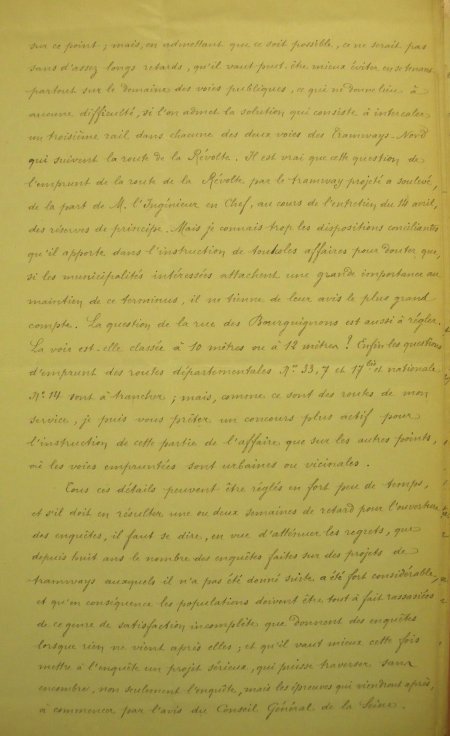 sur ce point ; mais, en admettant que ce soit possible, ce ne serait pas
sans d'assez longs retards, qu'il vaut peut-être mieux éviter en se tenant
partout sur le domaine des voies publiques, ce qui ne donne lieu à
aucune difficulté, si l'on admet la solution qui consiste à intercaler
un troisième rail dans chacune des deux voies des Tramways-Nord
qui suivent la route de la Révolte. Il est vrai que cette question de
l'emprunt de la route de la Révolte par le tramway projeté a soulevé,
de la part de M. l'Ingénieur en Chef, au cours de l'entretien du 14 avril,
des réserves de principe. Mais je connais trop les dispositions conciliantes
qu'il apporte dans l'instruction de toutes les affaires pour douter que,
si les municipalités intéressées attachent une grande importance au
maintien de ce terminus, il ne tienne de leur avis le plus grand
compte. La question de la rue des Bourguignons est aussi à régler.
La voie est-elle classée à 10 mètres ou à 12 mètres ? Enfin les questions
d'emprunt des routes départementales Nos 33, 7 et 17 bis et nationale
No 14 sont à trancher ; mais, comme ce sont des routes de mon
service, je puis vous prêter un concours plus actif pour
l'instruction de cette partie de l'affaire que sur les autres points,
où les voies empruntées sont urbaines ou vicinales.
Tous ces détails peuvent être réglés en fort peu de temps,
et s'il doit en résulter une ou deux semaines de retard pour l'ouverture
des enquêtes, il faut se dire, en vue d'atténuer les regrets, que
depuis huit ans le nombre des enquêtes faites sur des projets de
tramways auxquels il n'a pas été donné suite a été fort considérable,
et qu'en conséquence les populations doivent être tout à fait rassasiées
de ce genre de satisfaction incomplète que donnent des enquêtes
lorsque rien ne vient après elles ; et qu'il vaut mieux cette fois
mettre à l'enquête un projet sérieux, qui puisse traverser sans
encombre, non seulement l'enquête, mais les épreuves qui viendront après,
à commencer par l'avis du Conseil Général de la Seine.